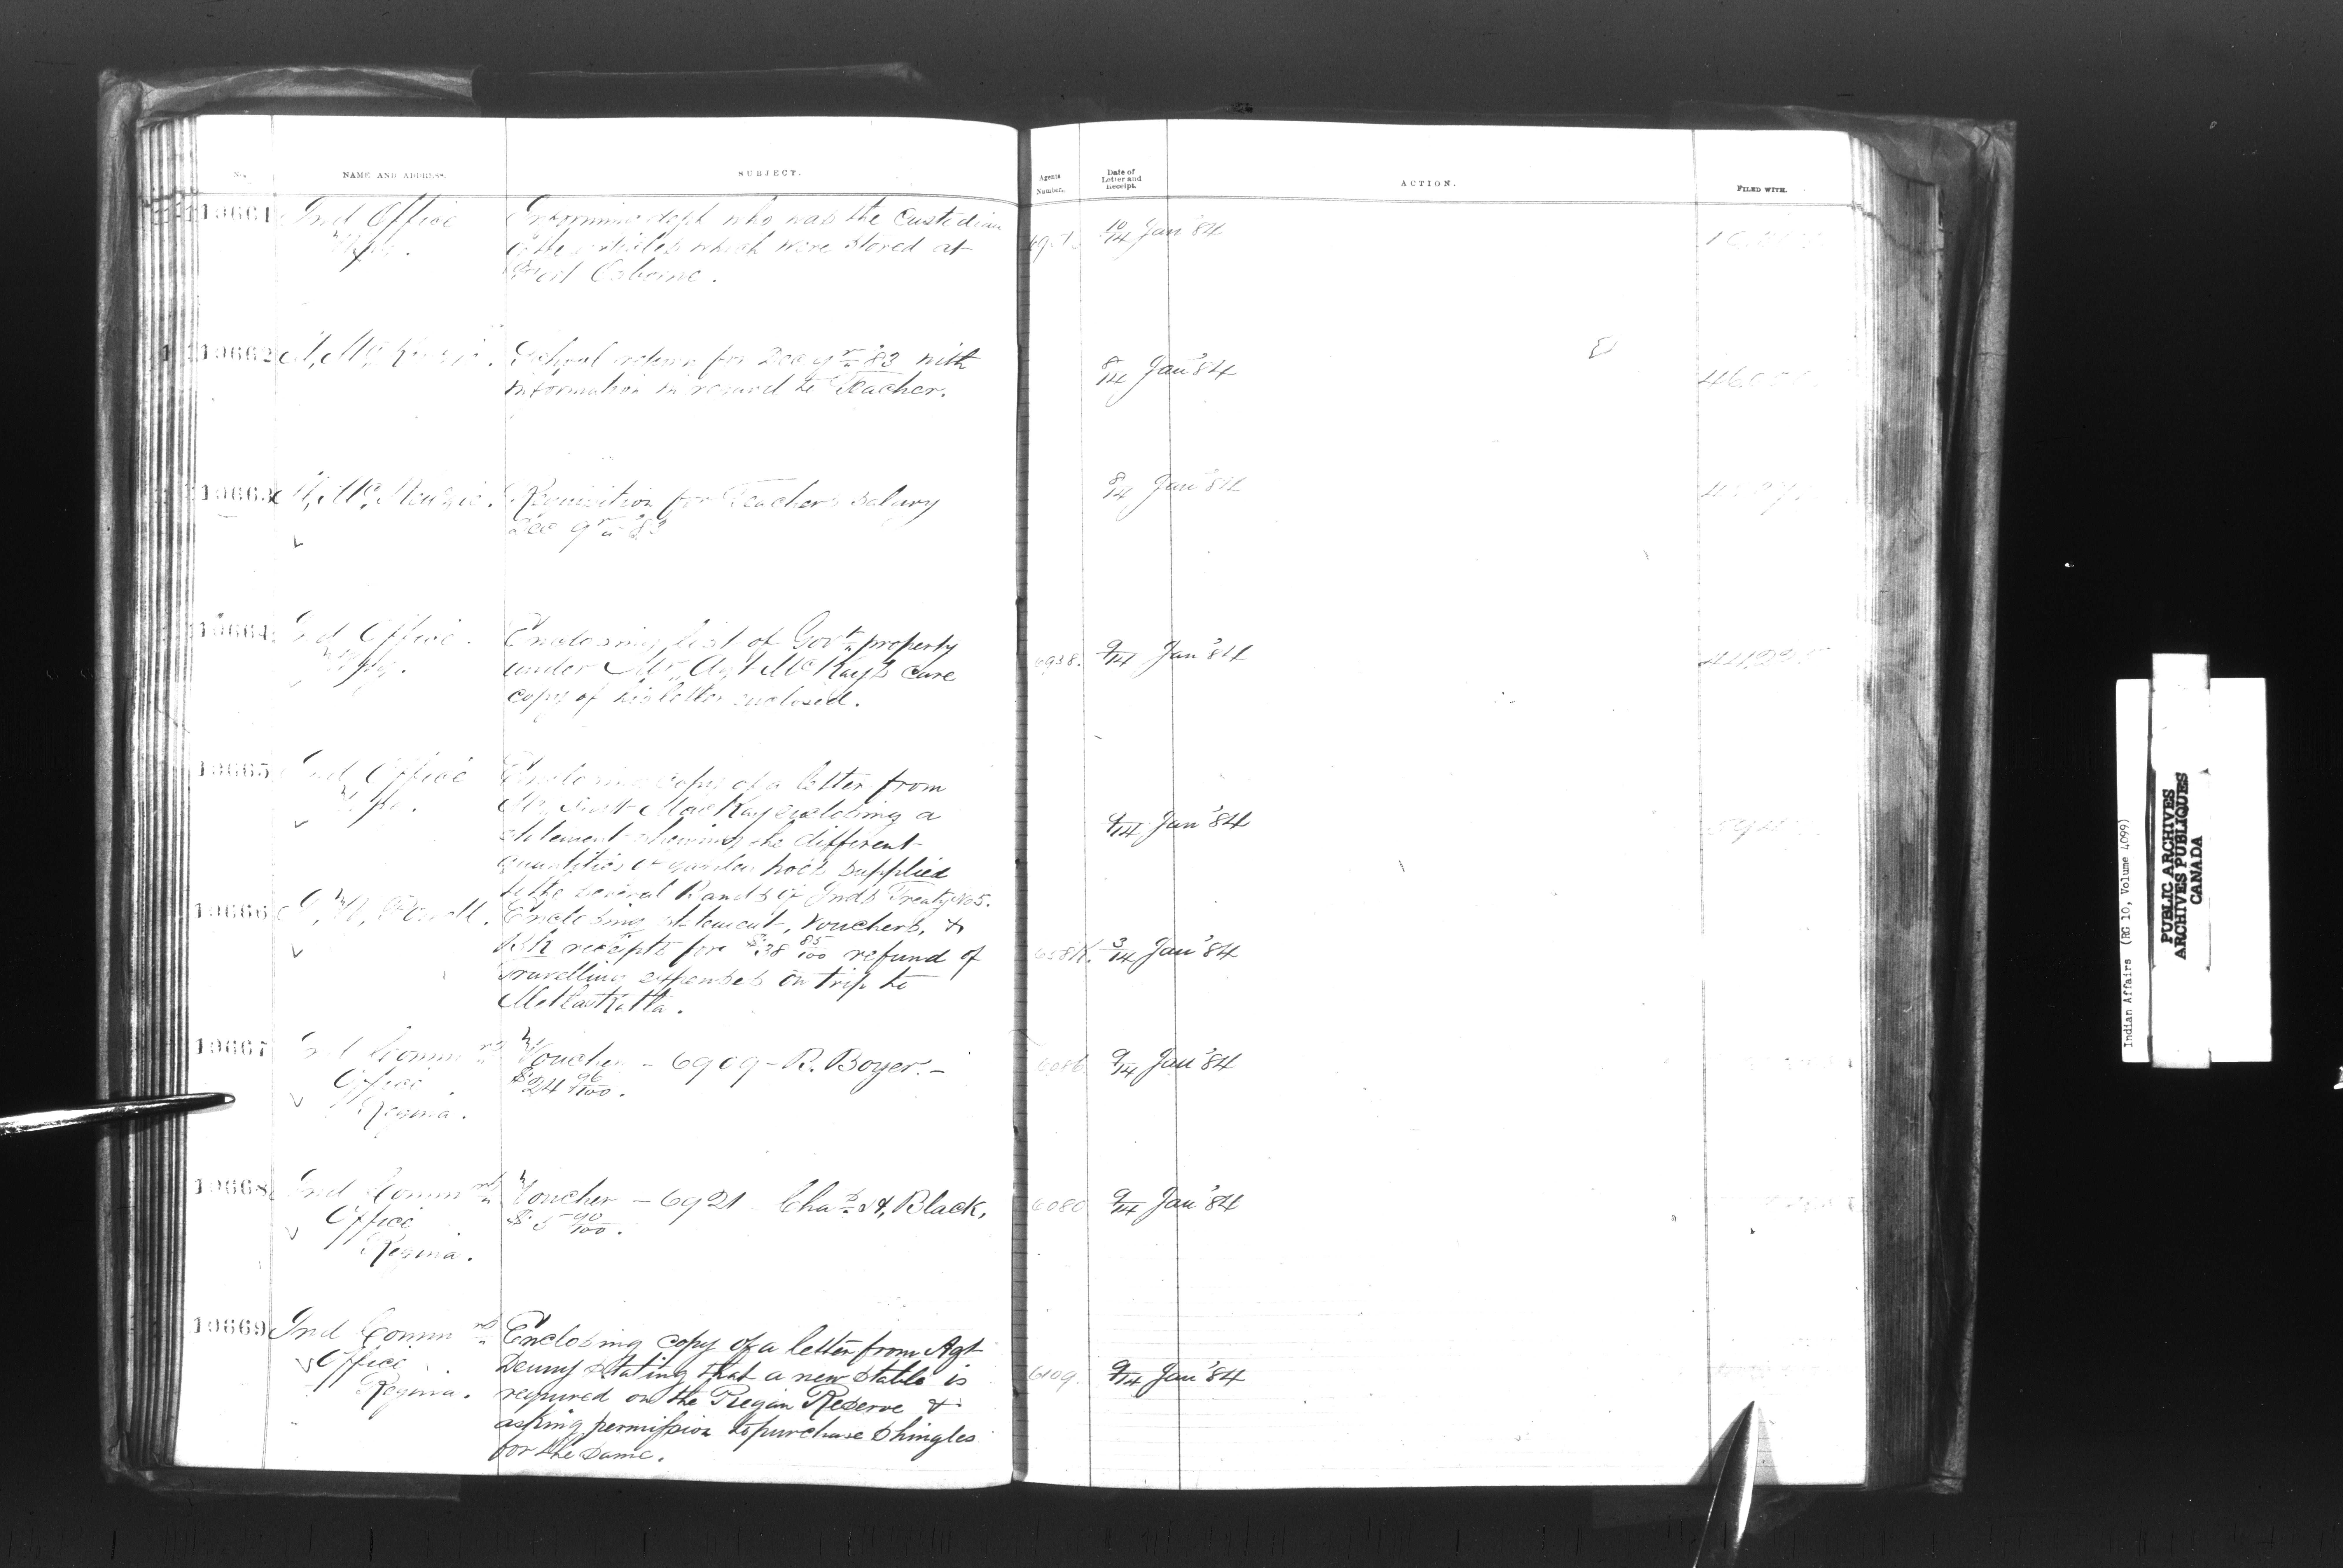 No.
NAME AND ADDRESS.
SUBJECT.
Agents Number.
Date of Letter and Receipt.
ACTION.
FILED WITH.
10661
Ind Office
Wpg.
Informing dept who was the Custodian
of the articles which were stored at
Fort Osborne.
10/14 Jan '84
10662
School return for Dec qr '83 with
information in regard to Teacher.
8/14 Jan '84
10663
Mc Kenzie.
Requisition for Teacher's Salary
Dec qr '83
8/14 Jan '84
10664
Ind Office
Wpg.
Enclosing list of Govt property
under Mr. Agt McKay's care
copy of his letter enclosed.
6938.
9/14 Jan '84
10665
Ind Office
Wpg.
Enclosing copy of a letter from
Mr. MacKay enclosing a
statement showing the different
quantities of garden hoes supplied
to the several Bands of Inds Treaty No 5.
9/14 Jan '84
10666
Powell.
Enclosing statement, vouchers, &
receipts for $38 85/100 refund of
travelling expenses on trip to
Metlakatla.
3/14 Jan '84
10667
Ind Commrs
Office
Regina.
Voucher - 6909 - R. Boyer. -
$24 96/100.
9/14 Jan '84
10668
Ind Commrs
Office
Regina.
Voucher - 6921 - Chas H. Black,
$5 90/100.
6080
9/14 Jan '84
10669
Ind Commrs
Office
Regina.
Enclosing copy of a letter from Agt
Denny stating that a new stable is
required on the Piegan Reserve &
asking permission to purchase shingles
for the same.
6109.
9/14 Jan '84
Indian Affairs (RG 10, Volume 4099)
PUBLIC ARCHIVES
ARCHIVES PUBLIQUES
CANADA